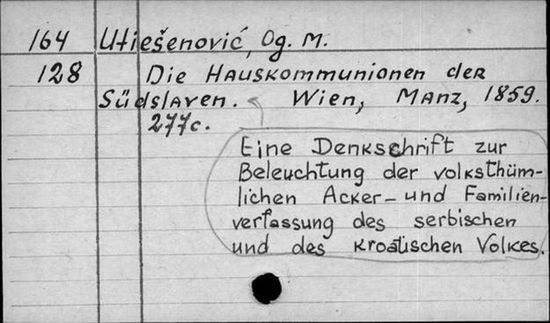 164 Utiešenović, Og. M.
128 Die Hauskommunionen der
Südslaven. Wien, Manz, 1859.
277c.
Eine Denkschrift zur
Beleuchtung der volksthüm-
lichen Acker- und Familien-
verfassung des serbischen
und des kroatischen Volkes.